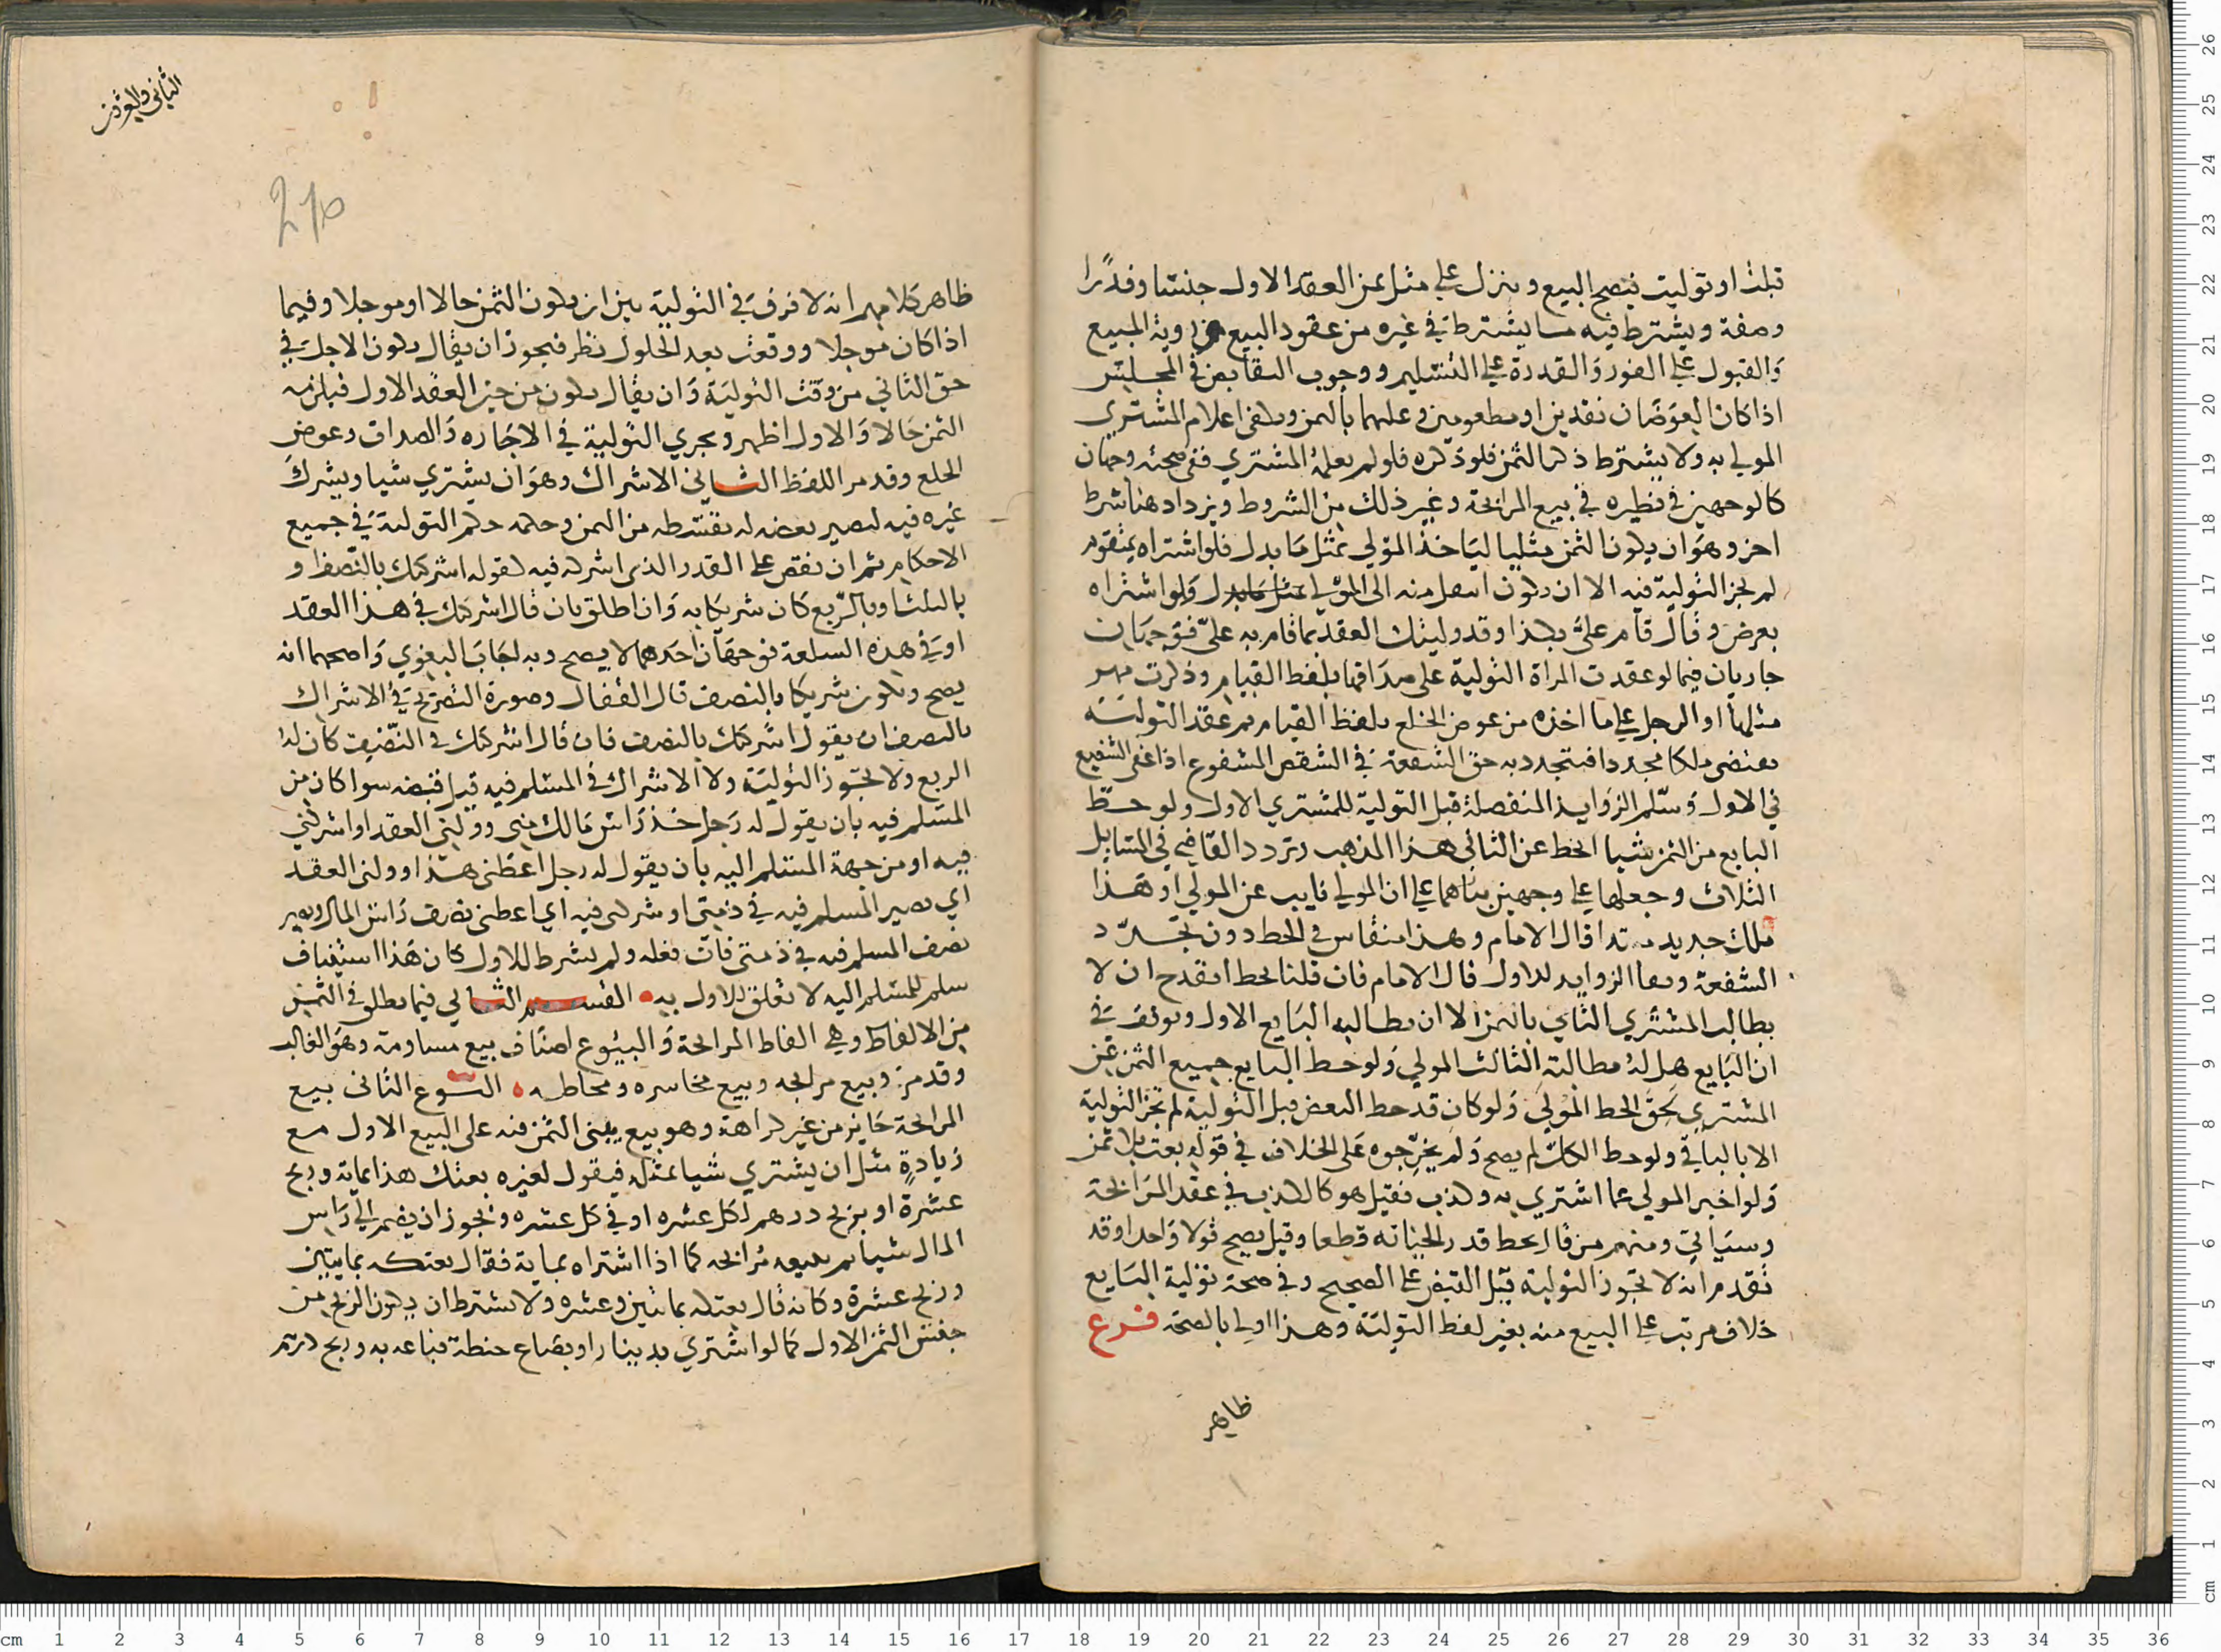 قبلت او توليت فيصح البيع وينزل على مثل ثمن العقد الاول جنسا وقدرا
وصفة ويشترط فيه ما يشترط في غيره من عقود البيع من روية المبيع
والقبول على الفور والقدرة على التسليم ووجوب التقابض في المجلس
اذا كان العوضان نقدين او مطعومين وعلمهما بالثمن ويكفي اعلام المشتري
المولي به ولا يشترط ذكر الثمن فلو ذكره فلو لم يعلمه المشتري ففي صحته وجهان
كالوجهين في نظيره في بيع المرابحة وغير ذلك من الشروط ويزداد هنا شرط
اخر وهو ان يكون الثمن مثليا لياخذ المولي بمثل ما بدل فلو اشتراه بمتقوم
لم يجز التولية فيه الا ان يكون انتقل منه الى المولي مثل ما بدل ولو اشتراه
بعرض وقال قام علي بكذا وقد وليتك العقد بما قام به علي فوجهان
جاريان فيما لو عقدت المراة التولية على صداقها بلفظ القيام وذكرت مهر
مثلها او الرجل على ما اخذه من عوض الخلع بلفظ القيام ثم عقد التولية
يقتضي ملكا مجددا فيتجدد به حق الشفعة في الشقص المشفوع اذا عفى الشفيع
في الاول وسلم الزوايد المنفصلة قبل التولية للمشتري الاول ولو حط
البايع من الثمن شيا انحط عن الثاني هذا المذهب وتردد القاضي في المسايل
الثلاث وجعلها على وجهين بناهما على ان المولي نايب عن المولي او هذا
ملك جديد مبتدا قال الامام وهذا منقاس في الحط دون تجدد
الشفعة وبقا الزوايد للاول قال الامام فان قلنا بحط انقدح ان لا
يطالب المشتري الثاني بالثمن الا ان يطالبه البايع الاول وتوقف في
ان البايع هل له مطالبة الثالث المولي ولو حط البايع جميع الثمن عن
المشتري لحق الحط المولي ولو كان قد حط البعض قبل التولية لم تجز التولية
الا بالباقي ولو حط الكل لم يصح ولم يخرجوه على الخلاف في قوله بعت بلا ثمن
ولو اخبر المولي عما اشتري به وكذب فقيل هو كالكذب في عقد المرابحة
وسياتي ومنهم من قال يحط قدر الخيانة قطعا وقيل يصح قولا واحدا وقد
تقدم انه لا تجوز التولية قبل القبض على الصحيح وفي صحة تولية البايع
خلاف مرتب على البيع منه بغير لفظ التولية وهذا اولى بالصحة فرع
ظاهر
الثاني والعشرون
210
ظاهر كلامهم انه لا فرق في التولية بين ان يكون الثمن حالا او موجلا وفيما
اذا كان موجلا ووقعت بعد الحلول نظر فيجوز ان يقال يكون الاجل في
حق الثاني من وقت التولية وان يقال يكون من حين العقد الاول فيلزمه
الثمن حالا والاول اظهر وتجري التولية في الاجاره والصداق وعوض
الخلع وقد مر اللفظ الثاني الاشراك وهو ان يشتري شيا ويشرك
غيره فيه ليصير بعضه له بقسطه من الثمن وحكمه حكم التولية في جميع
الاحكام ثم ان نقص على القدر الذي اشركه فيه كقوله اشركتك بالنصف او
بالثلث او بالربع كان شريكا به وان اطلق بان قال اشركتك في هذا العقد
او في هذه السلعة فوجهان احدهما لا يصح وبه اجاب البغوي واصحهما انه
يصح ويكون شريكا بالنصف قال القفال وصورة التصريح في الاشراك
بالنصف ان يقول اشركتك بالنصف فان قال اشركتك في النصف كان له
الربع ولا تجوز التولية ولا الاشراك في المسلم فيه قبل قبضه سوا كان من
المسلم فيه بان يقول له رجل خذ راس مالك مني وولني العقد او اشركني
فيه او من جهة المسلم اليه بان يقول له رجل اعطني هذا وولني العقد
اي يصير المسلم فيه في ذمتي او شركني فيه اي اعطني نصف راس المال ويصير
نصف المسلم فيه في ذمتي فان فعله ولم يشرط للاول كان هذا استيناف
سلم للمسلم اليه لا تعلق للاول به القسم الثاني فيما يطلق في الثمن
من الالفاظ وهي الفاظ المرابحة والبيوع اصناف بيع مساومة وهو الغالب
وقد مر وبيع مرابحه وبيع مخاسره ومحاطه النوع الثاني بيع
المرابحة جايز من غير كراهة وهو بيع يبنى الثمن فيه على البيع الاول مع
زيادة مثل ان يشتري شيا بمثله فيقول لغيره بعتك هذا بماية وربح
عشرة او بربح درهم لكل عشره او في كل عشره ويجوز ان يضم الى راس
المال شيا ثم يبيعه مرابحه كما اذا اشتراه بماية فقال بعتكه بمايتين
وربح عشرة وكانه قال بعتكه بماتين وعشره ولا يشترط ان يكون الربح من
جنس الثمن الاول كما لو اشتري بدينار او بصاع حنطة فباعه به وربح درهم